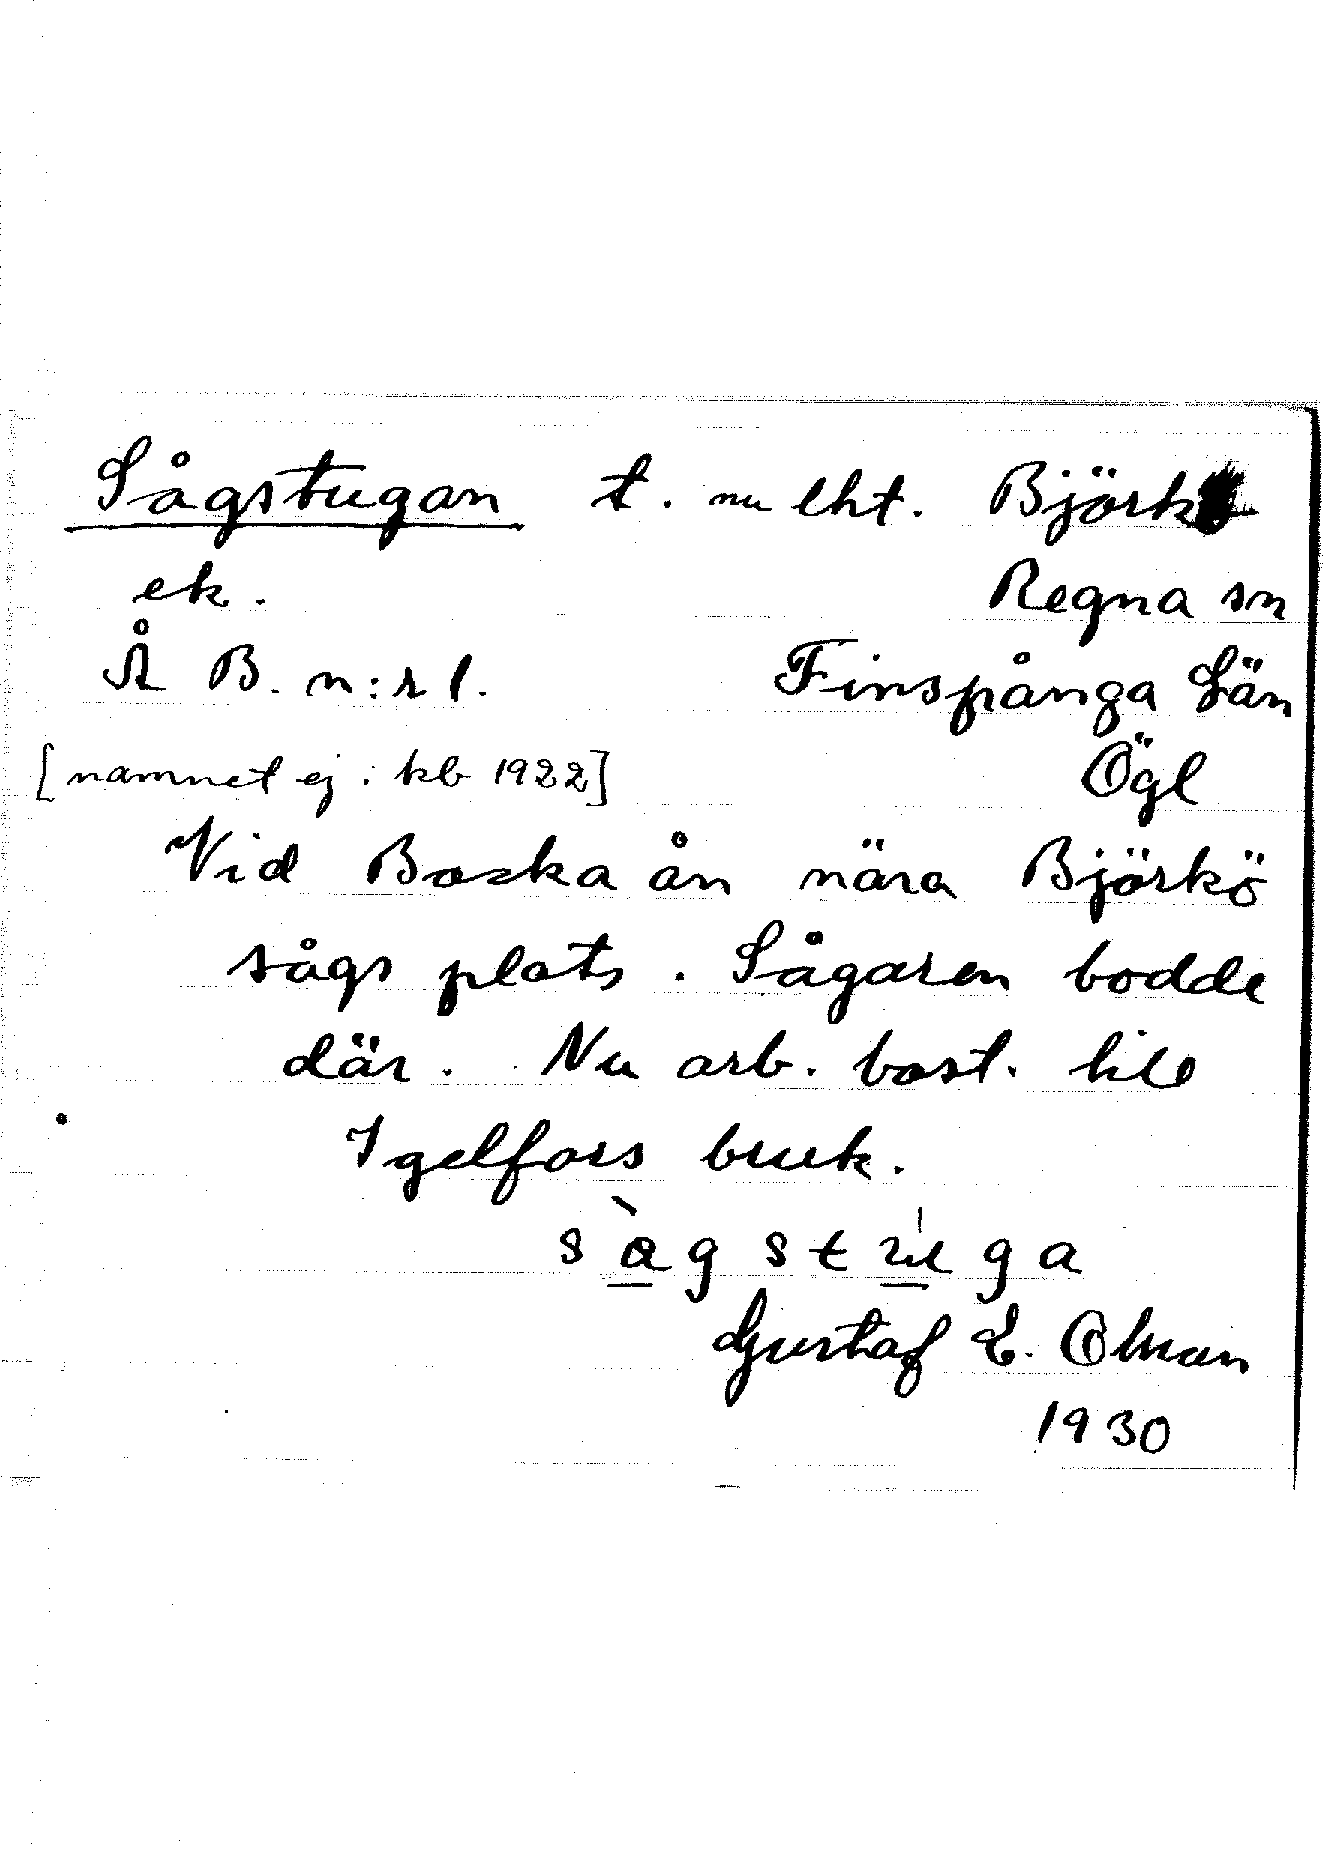 Sågstugan t. nu lht. Björkö
ek. Regna sn
Å B. n:r 1. Finspånga Län
[namnet ej i kb 1922] Ögl
Vid Boska ån nära Björkö
sågs plats. Sågaren bodde
där. Nu arb. bost. till
Igelfors bruk.
sågstuga
Gustaf E. Olman
1930